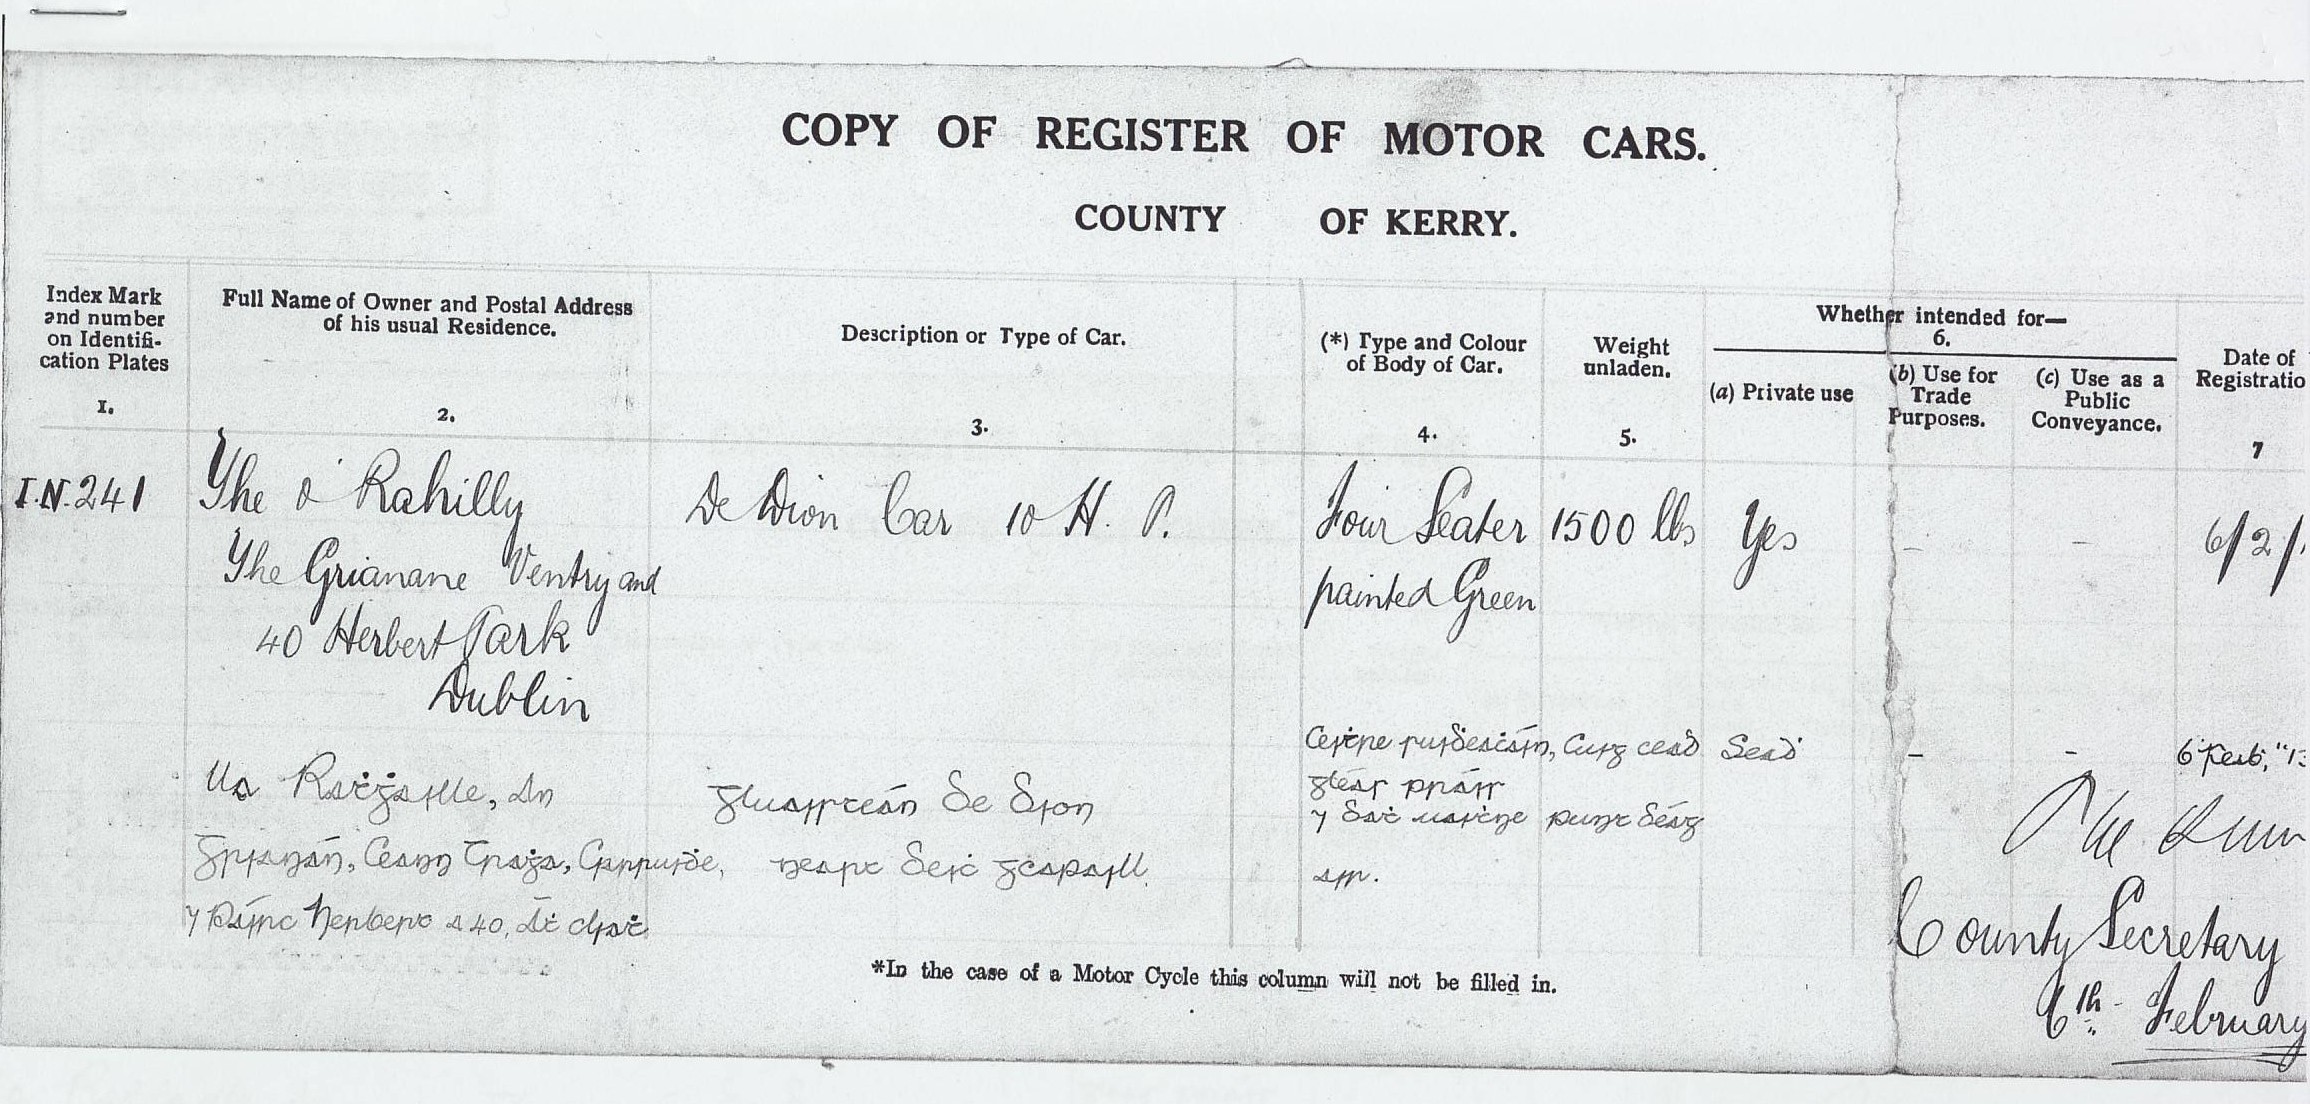 COPY OF REGISTER OF MOTOR CARS.
COUNTY OF KERRY.
Index Mark
and number
on Identifi-
cation Plates
1.
Full Name of Owner and Postal Address
of his usual Residence.
2.
Description or Type of Car.
3.
(*) Type and Colour
of Body of Car.
4.
Weight
unladen.
5.
Whether intended for—
6.
(a) Private use
(b) Use for
Trade
Purposes.
(c) Use as a
Public
Conveyance.
Date of
Registratio
7
I.N.241
The O'Rahilly
The Grianane Ventry and
40 Herbert Park
Dublin
De Dion Car 10 H. P.
Four Seater
painted Green
1500 lbs
Yes
–
–
6/2/1
Ua Raṫġaille, An
Grianán, Ceann Tráġa,
⁊ Páirc Herbert a 40, Át Cliaṫ
gluaisteán De Dion
neart deiċ gcapaill
gléas práis
⁊ daṫ uaiṫne
air.
Cúig céad
punt déag
Seaḋ
–
–
6 Feab, "13
County Secretary
6th February
*In the case of a Motor Cycle this column will not be filled in.